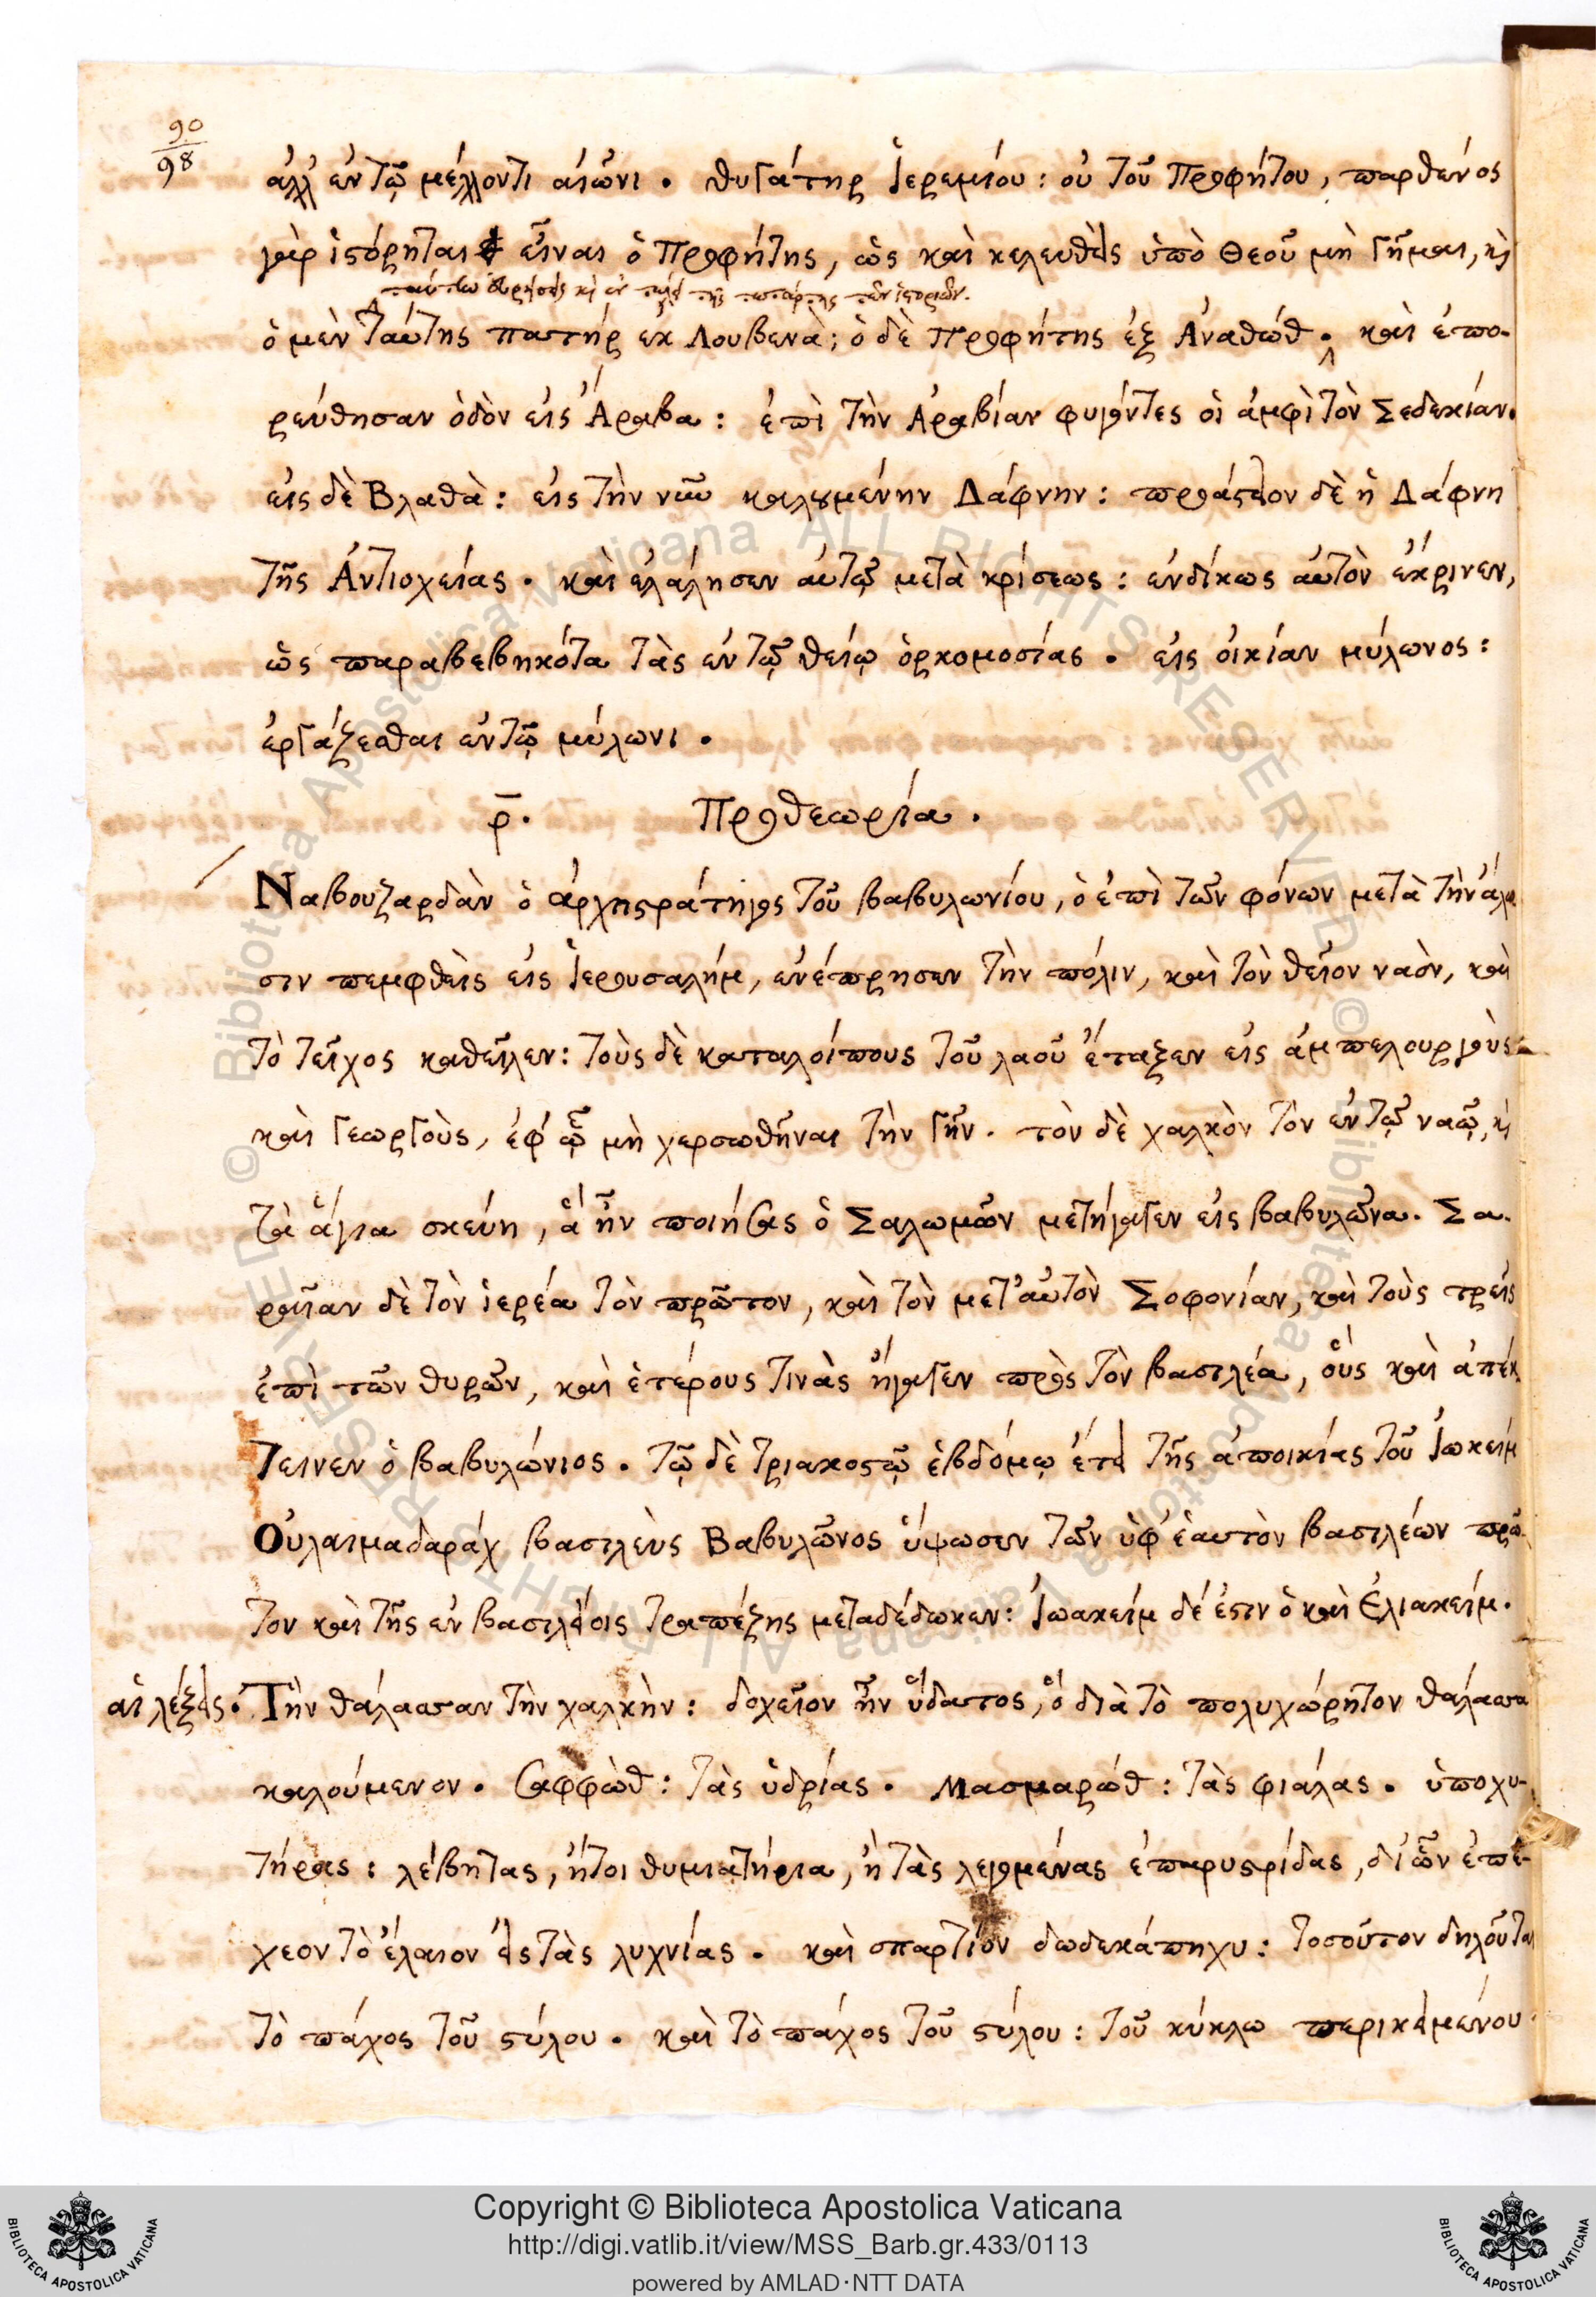 90
98
ἀλλ' ἐν τῷ μέλλοντι αἰῶνι. θυγάτηρ Ἱερεμίου: οὐ τοῦ Προφήτου, παρθένος
γὰρ ἱστόρηται εἶναι ὁ Προφήτης, ὡς καὶ κελευθεὶς ὑπὸ Θεοῦ μὴ γῆμαι, κὶ
ταύτην εὑρήσεις κὶ ἐν τέλει τῆς τετάρτης τῶν ἱστοριῶν.
ὁ μὲν ταύτης πατὴρ ἐκ Λουβενὰ; ὁ δὲ Προφήτης ἐξ Ἀναθώθ. καὶ ἐπο-
ρεύθησαν ὁδὸν εἰς Ἄραβα: ἐπὶ τὴν Ἀραβίαν φυγόντες οἱ ἀμφὶ τὸν Σεδεκίαν.
εἰς δὲ Βλαθὰ: εἰς τὴν νῦν καλουμένην Δάφνην: προάστειον δὲ ἡ Δάφνη
τῆς Ἀντιοχείας. καὶ ἐλάλησεν αὐτῷ μετὰ κρίσεως: ἐνδίκως αὐτὸν ἔκρινεν,
ὡς παραβεβηκότα τὰς ἐν τῷ θείῳ ὁρκομοσίας. εἰς οἰκίαν μύλωνος:
ἐργάζεσθαι ἐν τῷ μύλωνι.
ρ̄. Προθεωρία.
Ναβουζαρδὰν ὁ ἀρχιστράτηγος τοῦ βαβυλωνίου, ὁ ἐπὶ τῶν φόνων μετὰ τὴν ἅλω
σιν πεμφθεὶς εἰς Ἱερουσαλήμ, ἐνέπρησεν τὴν πόλιν, καὶ τὸν θεῖον ναὸν, καὶ
τὸ τεῖχος καθεῖλεν: τοὺς δὲ καταλοίπους τοῦ λαοῦ ἔταξεν εἰς ἀμπελουργοὺς
καὶ γεωργοὺς, ἐφ' ᾧ μὴ χερσωθῆναι τὴν γῆν. τὸν δὲ χαλκὸν τὸν ἐν τῷ ναῷ, κὶ
τὰ ἅγια σκεύη, ἃ ἦν ποιήσας ὁ Σαλωμῶν μετήγαγεν εἰς βαβυλῶνα. Σα.
ραῖαν δὲ τὸν ἱερέα τὸν πρῶτον, καὶ τὸν μετ' αὐτὸν Σοφονίαν, καὶ τοὺς τρεῖς
ἐπὶ τῶν θυρῶν, καὶ ἑτέρους τινὰς ἤγαγεν πρὸς τὸν βασιλέα, οὓς καὶ ἀπέκ
τεινεν ὁ βαβυλώνιος. τῷ δὲ τριακοστῷ ἑβδόμῳ ἔτει τῆς ἀποικίας τοῦ Ἰωκείμ
Οὐλαιμαδαράχ βασιλεὺς Βαβυλῶνος ὕψωσεν τῶν ὑφ' ἑαυτὸν βασιλέων πρῶ-
τον καὶ τῆς ἐν βασιλείοις τραπέζης μεταδέδωκεν: Ἰωακείμ δέ ἐστιν ὁ καὶ Ἐλιακείμ.
αἱ λέξεις. Τὴν θάλασσαν τὴν χαλκὴν: δοχεῖον ἦν ὕδατος, ὃ διὰ τὸ πολυχώρητον θάλασσα
καλούμενον. Σαφφὼθ: τὰς ὑδρίας. Μασμαρώθ: τὰς φιάλας. ὑποχυ-
τήρας: λέβητας, ἤτοι θυμιατήρια, ἢ τὰς λεγομένας ἐπαρυστρίδας, δι' ὧν ἐπέ-
χεον τὸ ἔλαιον εἰς τὰς λυχνίας. καὶ σπαρτίον δωδεκάπηχυ: τοσοῦτον δηλοῦται
τὸ πάχος τοῦ στύλου. καὶ τὸ πάχος τοῦ στύλου: τοῦ κύκλω περικειμένου
Copyright © Biblioteca Apostolica Vaticana
http://digi.vatlib.it/view/MSS_Barb.gr.433/0113
powered by AMLAD·NTT DATA